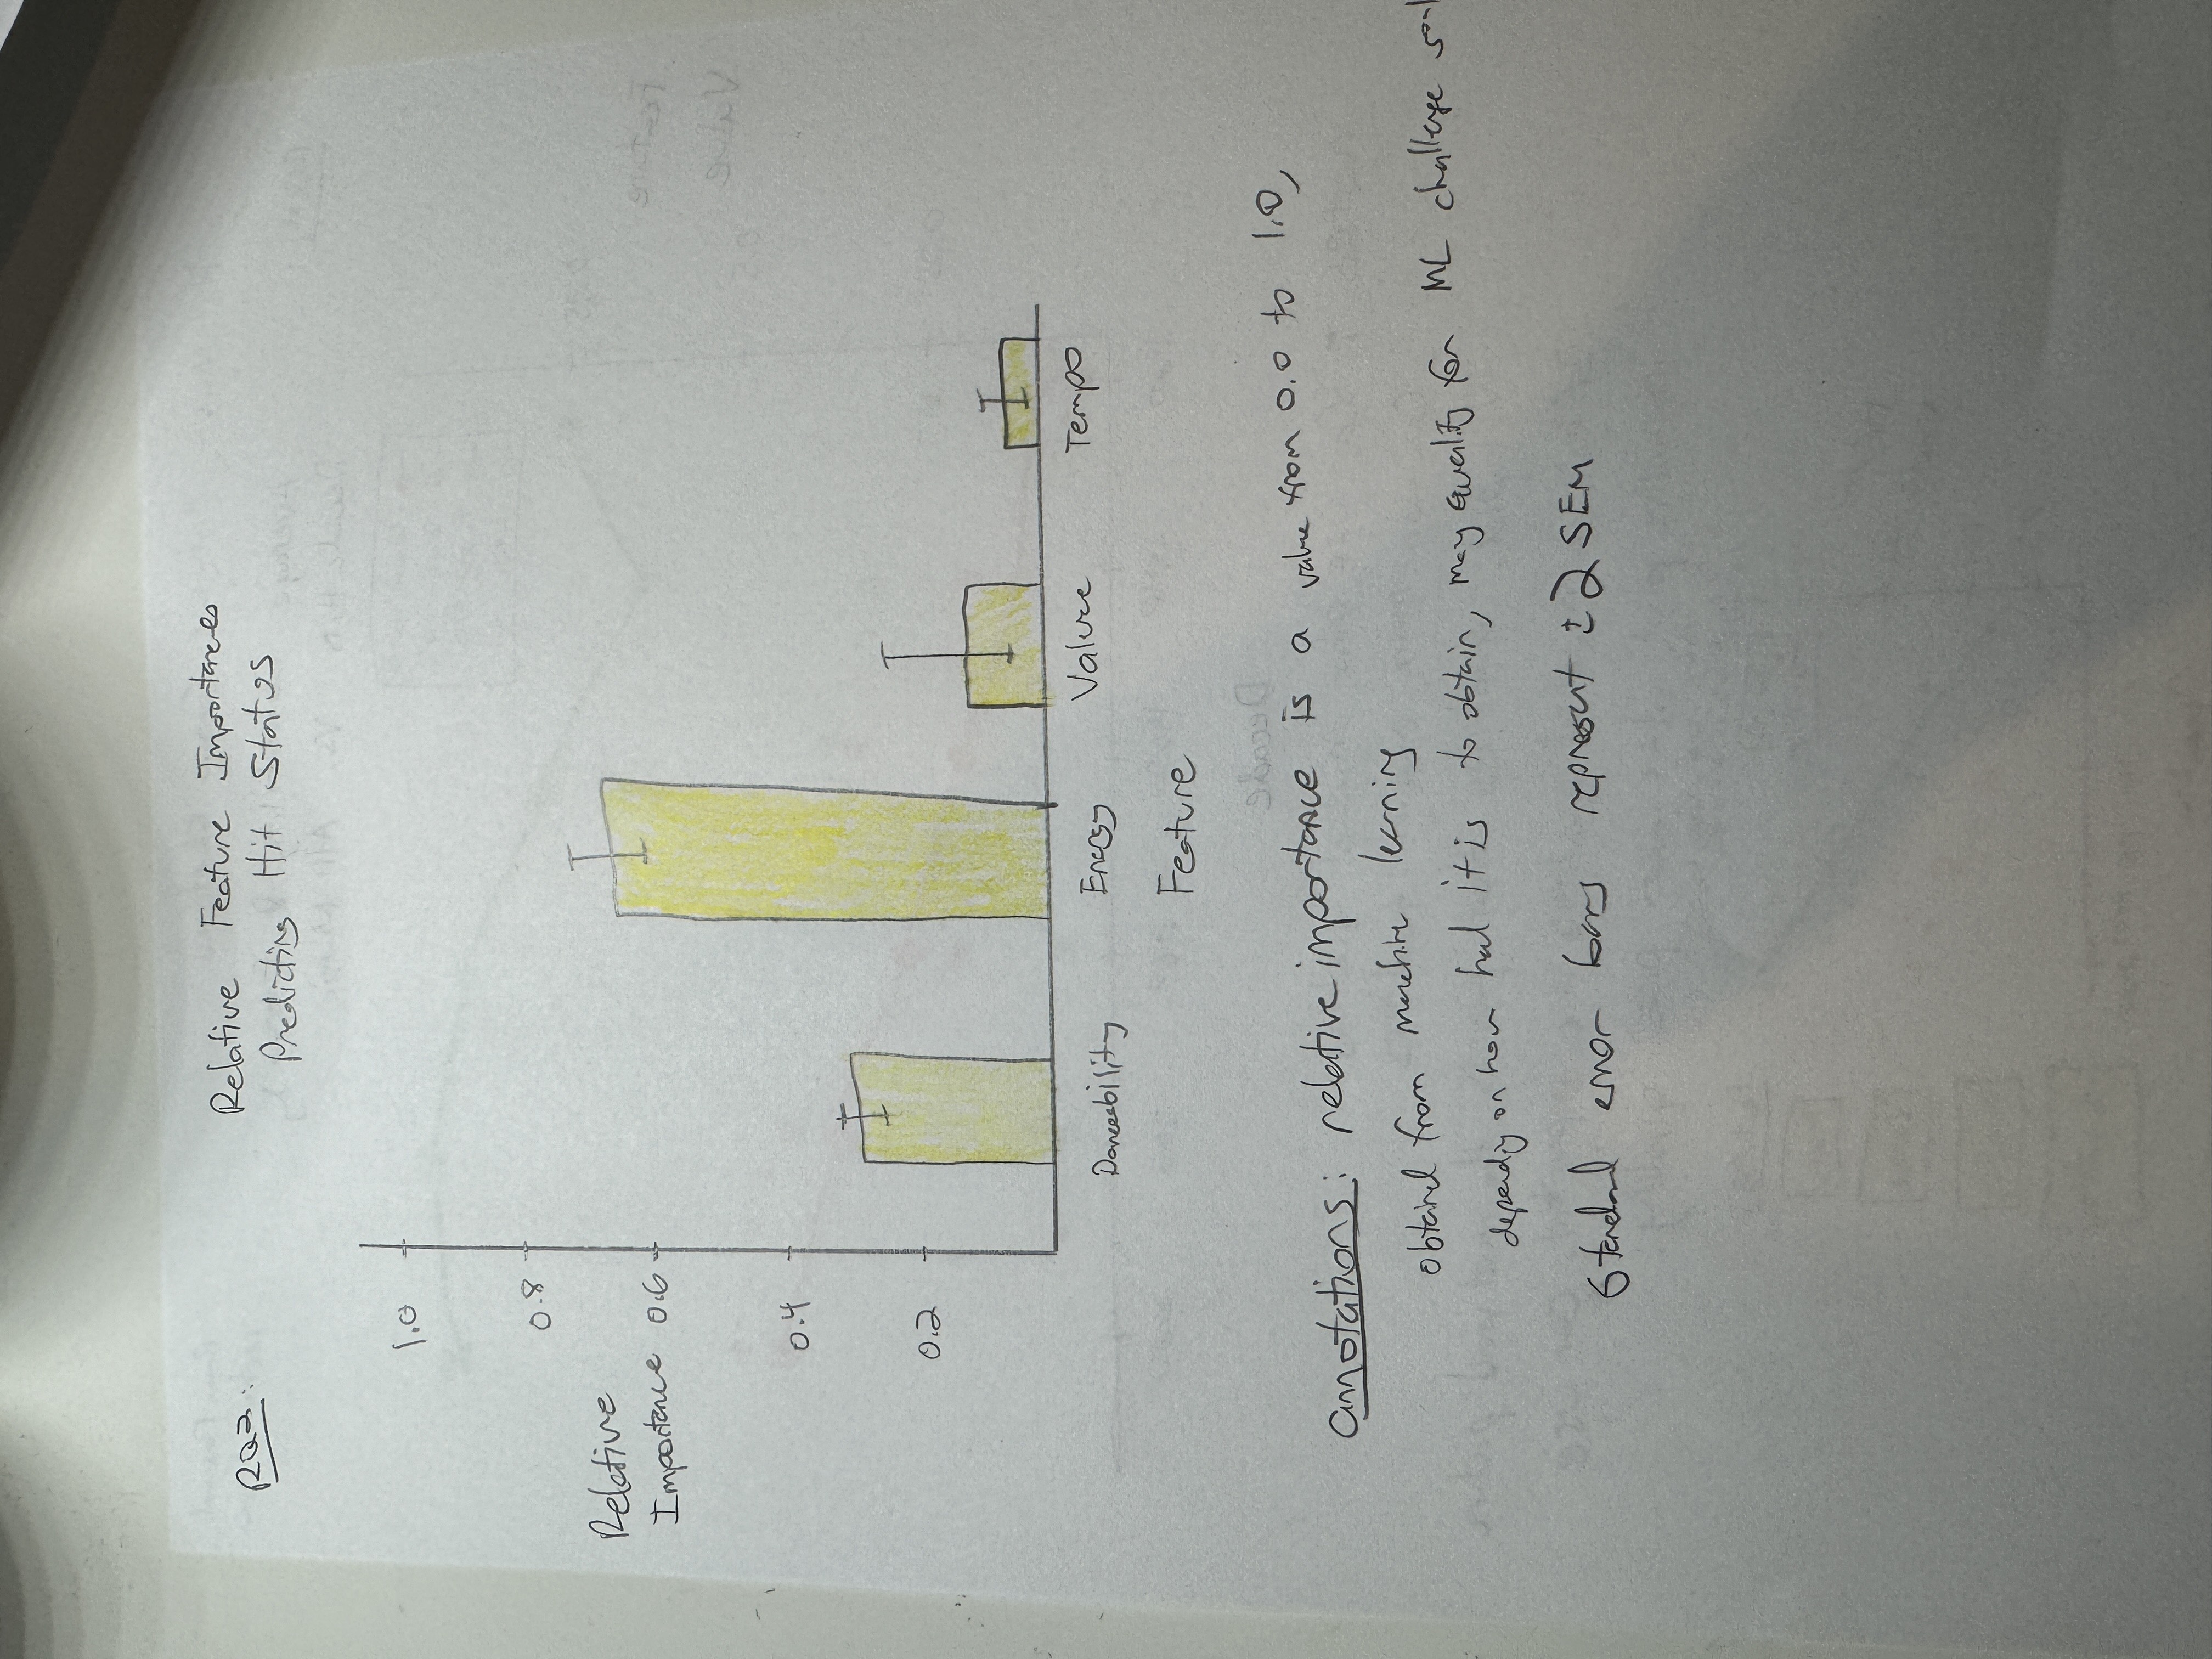 RQ2:
Relative Feature Importances
Predicting Hit Status
1.0
0.8
Relative
Importance
0.6
0.4
0.2
Danceability
Energy
Tempo
Feature
annotations: relative importance is a value from 0.0 to 1.0,
obtained from machine learning
depending on how hard it is to obtain, may qualify for ML challenge goal
Standard error bars represent ±2 SEM
Decade
Feature
Value